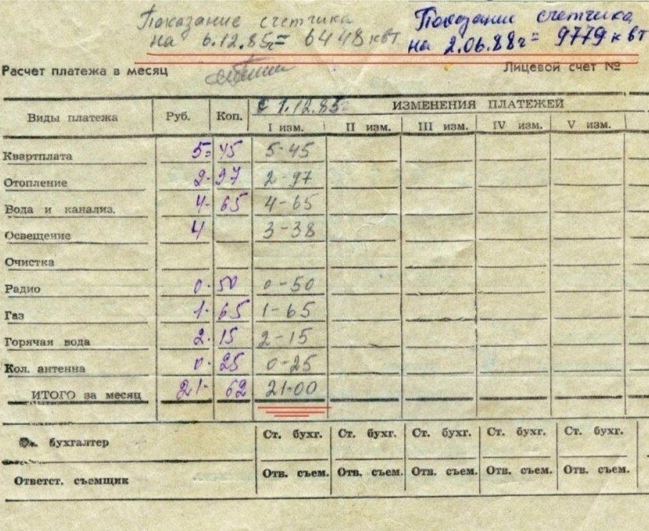 Показание счетчика
на 6.12.85г= 6448 квт
Показании счетчика
на 2.06.88г= 9779 квт
Расчет платежа в месяц
Лицевой счет №
Виды платежа Руб. Коп. с 1.12.85г ИЗМЕНЕНИЯ ПЛАТЕЖЕЙ
I изм. II изм. III изм. IV изм. V изм.
Квартплата 5= 45 5-45
Отопление 2- 97 2-97
Вода и канализ. 4- 65 4-65
Освещение 4 3-38
Очистка
Радио 0- 50 0-50
Газ 1- 65 1-65
Горячая вода 2- 15 2-15
Кол. антенна 0- 25 0-25
ИТОГО за месяц 21- 62 21-00
бухгалтер Ст. бухг. Ст. бухг. Ст. бухг. Ст. бухг. Ст. бухг.
Ответст. съемщик Отв. съем. Отв. съем. Отв. съем. Отв. съем. Отв. съем.